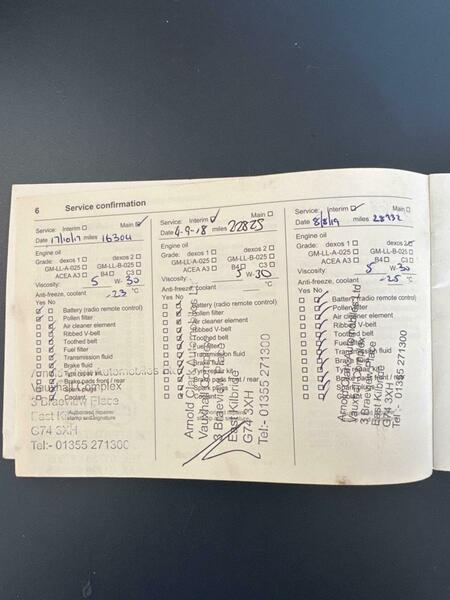 6 Service confirmation
Service: Interim Main
Date 17/10/17 miles 16304
Engine oil
Grade: dexos 1 dexos 2
GM-LL-A-025 GM-LL-B-025
ACEA A3 B4 C3
Viscosity: 5 W- 30
Anti-freeze, coolant -23 °C
Yes No
Battery (radio remote control)
Pollen filter
Air cleaner element
Ribbed V-belt
Toothed belt
Fuel filter
Transmission fluid
Brake fluid
Tyre repair kit
Brake pads front / rear
Spark plugs
Coolant
Authorised repairer
stamp and signature
Arnold Clark Automobiles
Vauxhall Complex
3 Braeview Place
East Kilbride
G74 3XH
Tel:- 01355 271300
Service: Interim Main
Date 4-9-18 miles 22825
Engine oil
Grade: dexos 1 dexos 2
GM-LL-A-025 GM-LL-B-025
ACEA A3 B4 C3
Viscosity: 5 W- 30
Anti-freeze, coolant °C
Yes No
Battery (radio remote control)
Pollen filter
Air cleaner element
Ribbed V-belt
Toothed belt
Fuel filter
Transmission fluid
Brake fluid
Tyre repair kit
Brake pads front / rear
Spark plugs
Coolant
Arnold Clark Automobiles L
Vauxhall
3 Braeview
East Kilbride
G74 3XH
Tel:- 01355 271300
Service: Interim Main
Date 8/8/19 miles 28732
Engine oil
Grade: dexos 1 dexos 2
GM-LL-A-025 GM-LL-B-025
ACEA A3 B4 C3
Viscosity: 5 W- 30
Anti-freeze, coolant -25 °C
Yes No
Battery (radio remote control)
Pollen filter
Air cleaner element
Ribbed V-belt
Toothed belt
Fuel filter
Transmission fluid
Brake fluid
Tyre repair kit
Brake pads front / rear
Spark plugs
Coolant
Arnold Clark Automobiles Ltd
Vauxhall
3 Braeview Place
East Kilbride
G74 3XH
Tel:- 01355 271300